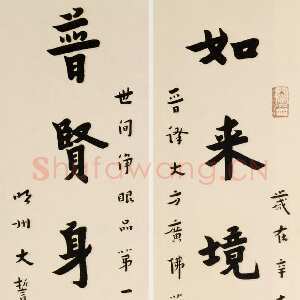 歲在辛
如来境
晋译大方廣佛
世间净眼品第一
普賢身
明州大誓
Shufawang.CN